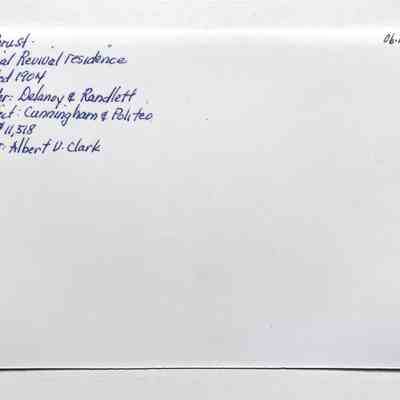 rust.
06.
al Revival residence
ed 1904
er: Delaney & Randlett
ect: Cunningham & Politeo
$11,518
r: Albert V. Clark